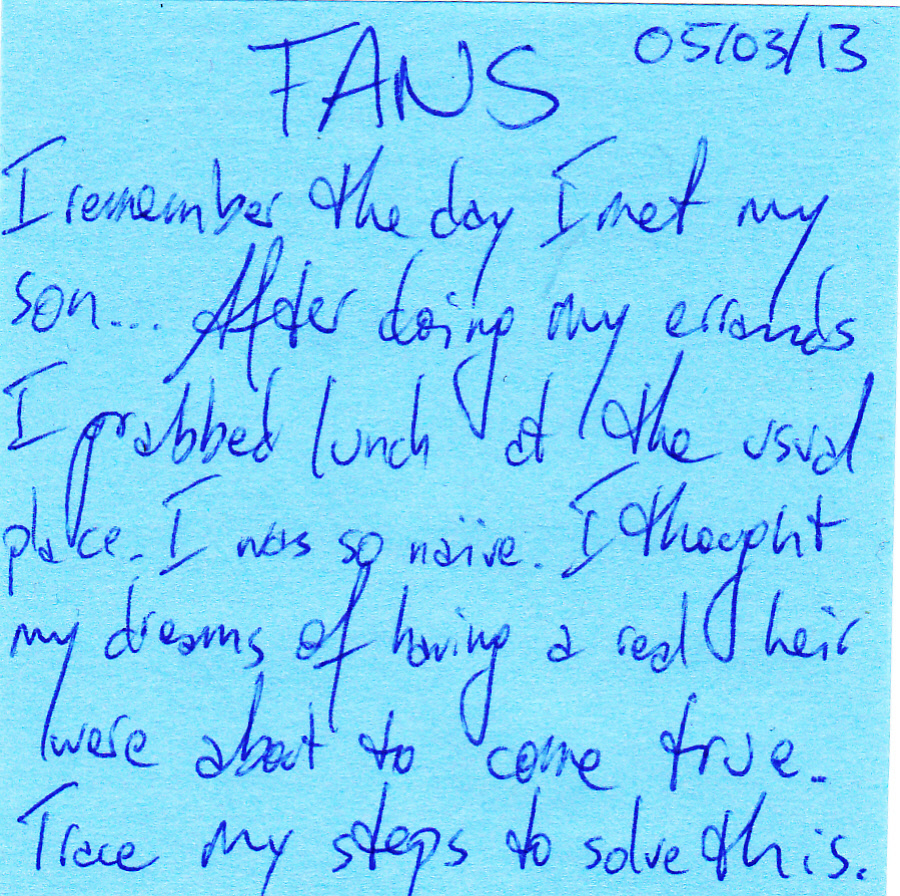 FANS 05/03/13
I remember the day I met my
son... After doing my errands
I grabbed lunch at the usual
place. I was so naïve. I thought
my dreams of having a real heir
were about to come true..
Trace my steps to solve this.